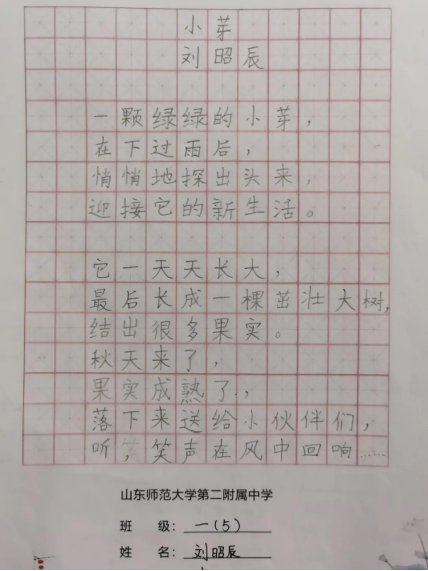 小芽
刘昭辰
一颗绿绿的小芽，
在下过雨后，
悄悄地探出头来，
迎接它的新生活。
它一天天长大，
最后长成一棵茁壮大树，
结出很多果实。
秋天来了，
果实成熟了，
落下来送给小伙伴们，
听，笑声在风中回响……
山东师范大学第二附属中学
班 级：一(5)
姓 名：刘昭辰